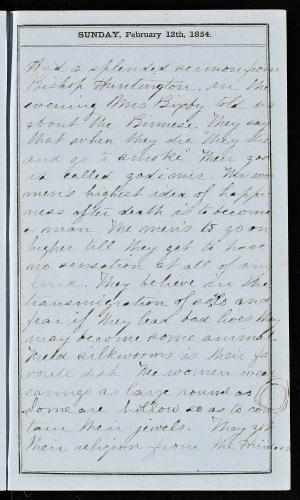 SUNDAY, February 12th, 1854.
Had a splended sermon from
Bishop Huntington. In the
evening Mrs Bixby told us
about the Birmese. They say
that when they die "they die
and go to smoke". Their god
is called godama. The wo
men's highest idea of happi-
ness after death is to become
a man. The men's to go on
higher till they get to have
no sensation at all of any
kind. They believe in the
transmigration of souls and
fear if they lead bad lives they
may become some animal.
Fried silkworms is their fa
vorite dish. The women wear
earrings as large round as
Some are hollow so as to con
tain their jewels. They got
their religion from the